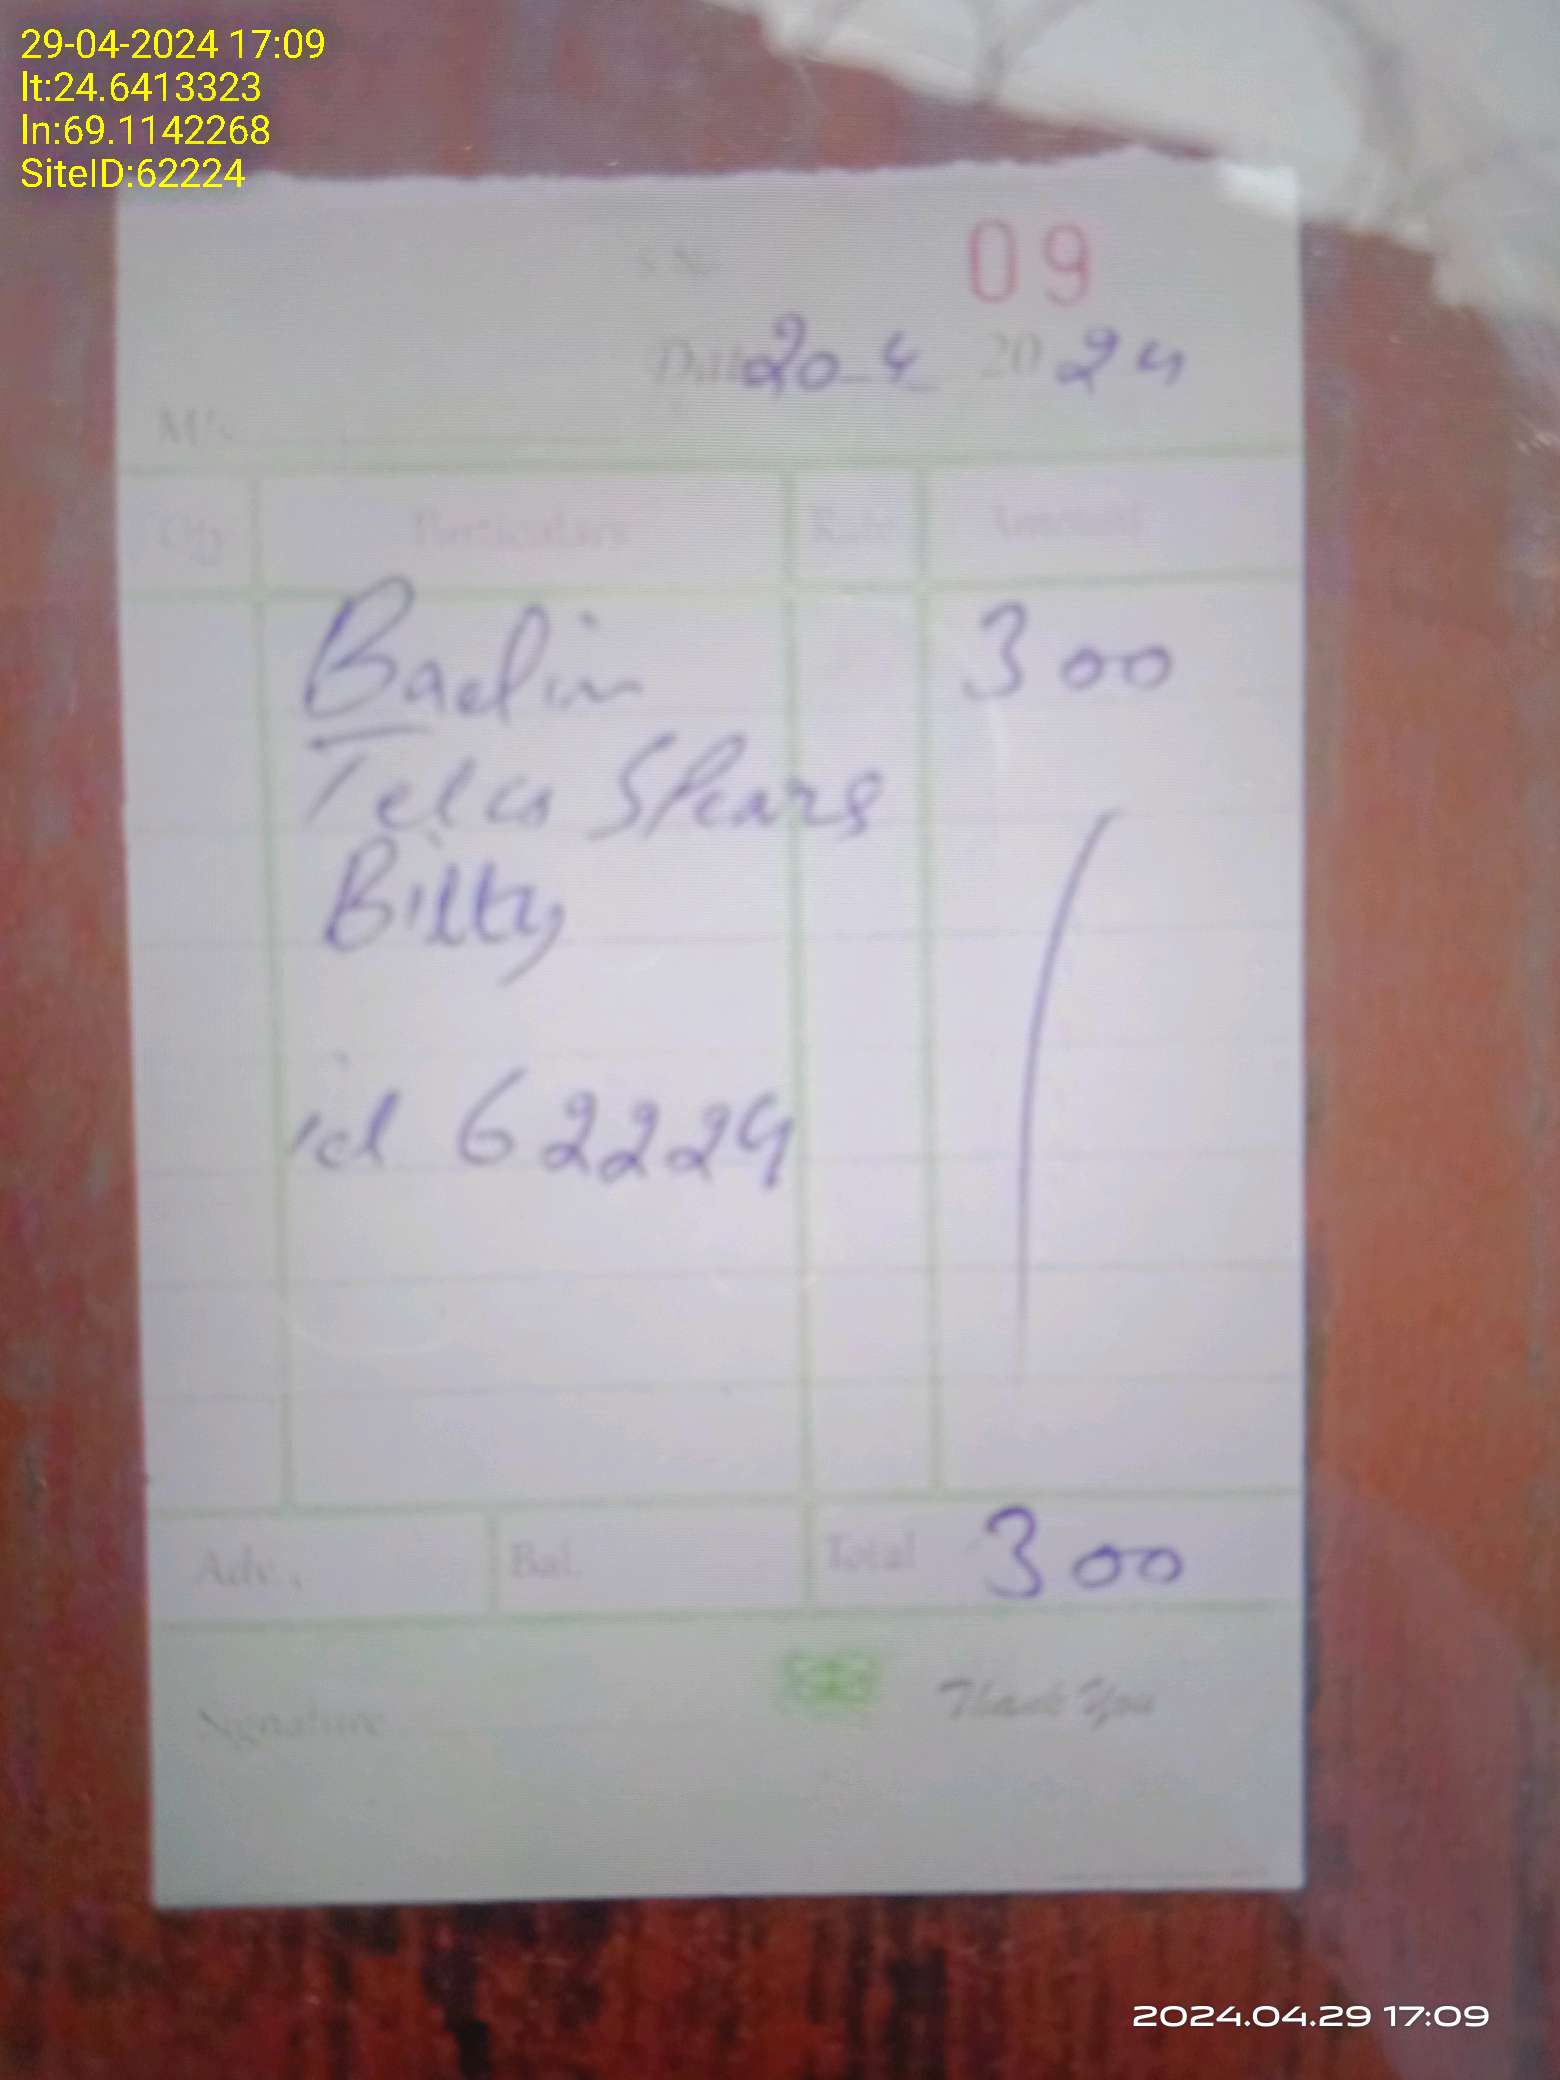 29-04-2024 17:09
lt:24.6413323
ln:69.1142268
SiteID:62224
S.No 09
Date 20-4 2024
M/s
Qty Particulars Rate Amount
Badin 300
Telco Spears
Bilty
id 62224
Adv. Bal. Total 300
Signature Thank You
2024.04.29 17:09